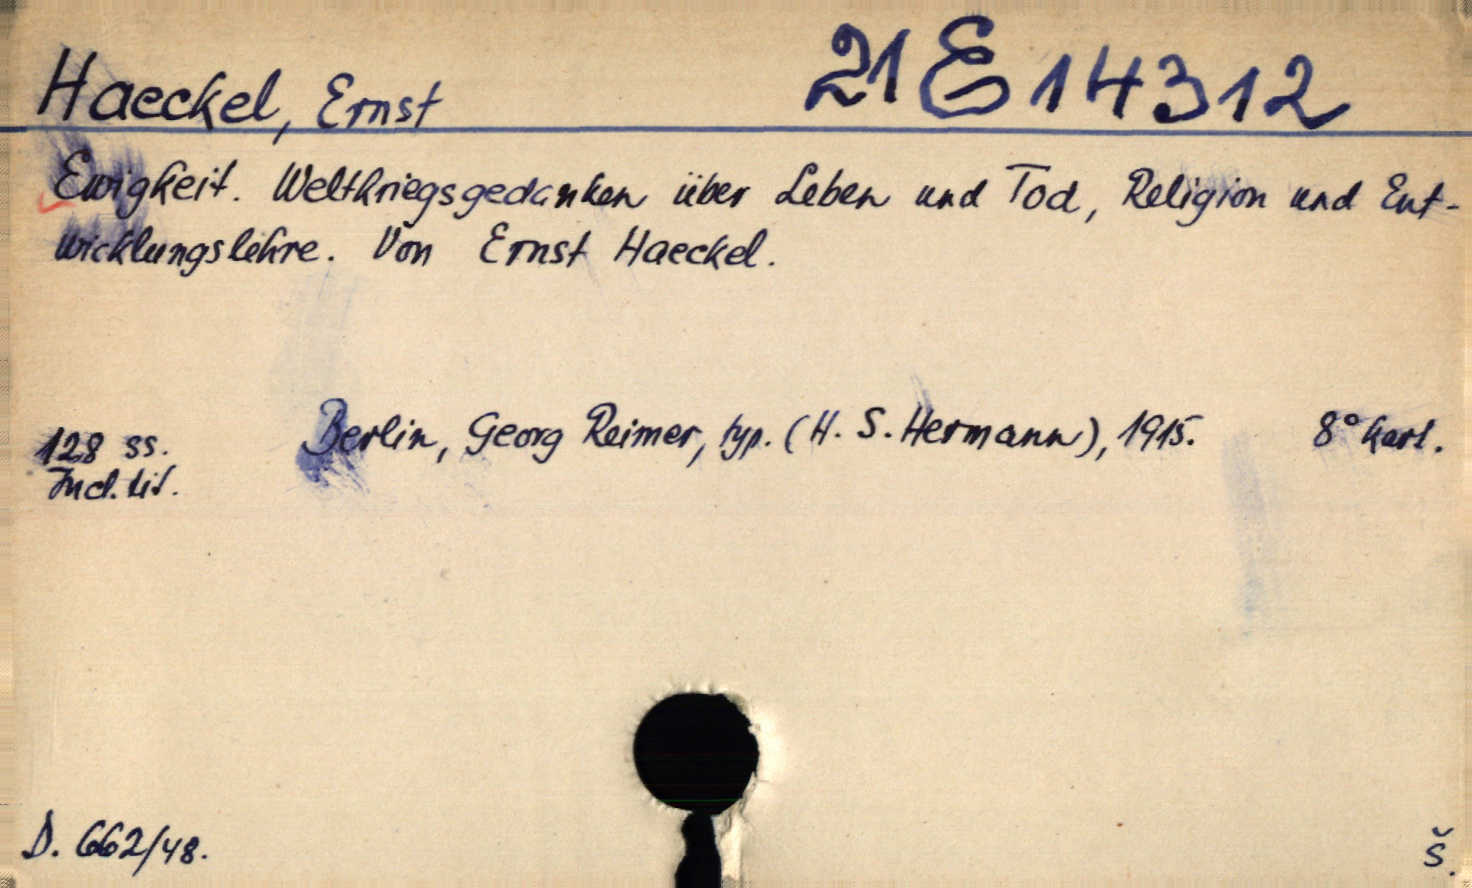 Haeckel, Ernst 21 E 14312
Ewigkeit. Weltkriegsgedanken über Leben und Tod, Religion und Ent-
wicklungslehre. Von Ernst Haeckel.
128 ss. Berlin, Georg Reimer, typ. (H. S. Hermann), 1915. 8° kart.
Incl. tit.
D. 662/48. š.